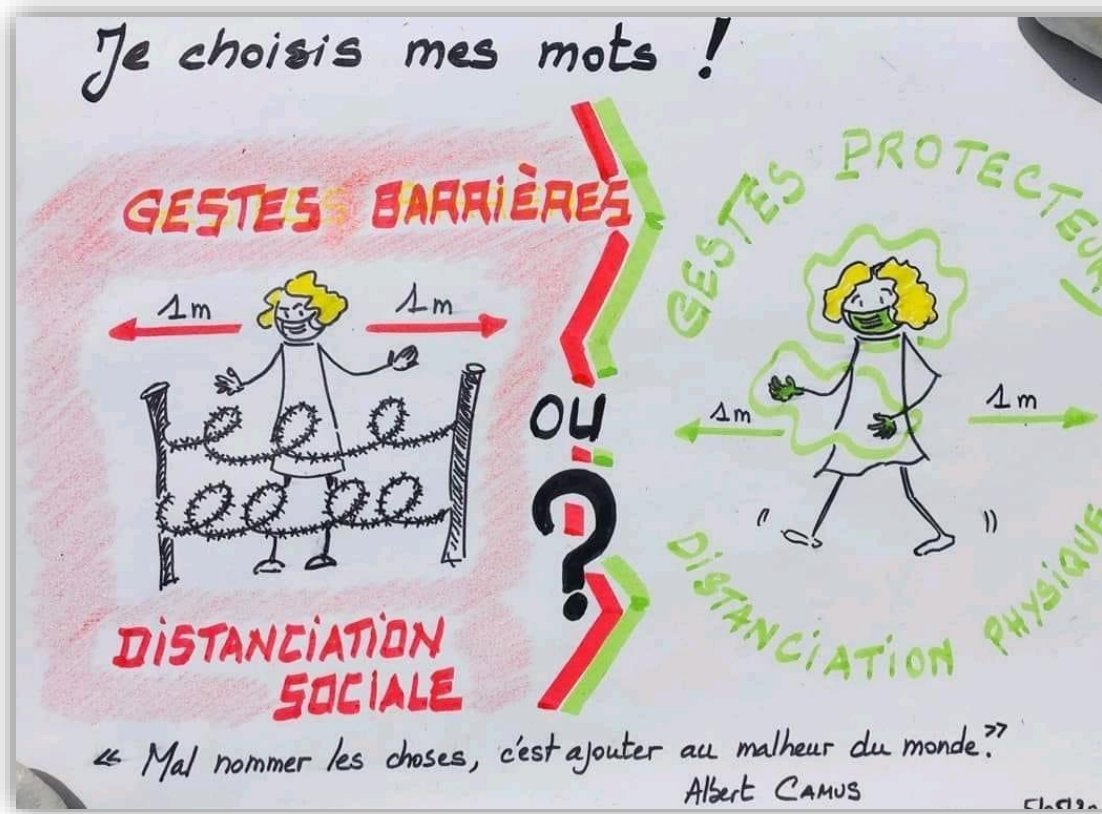 Je choisis mes mots !
GESTES BARRIÈRES
1m
1m
DISTANCIATION
SOCIALE
OU
?
GESTES PROTECTEUR
1m
1m
DISTANCIATION PHYSIQUE
« Mal nommer les choses, c'est ajouter au malheur du monde. »
Albert CAMUS